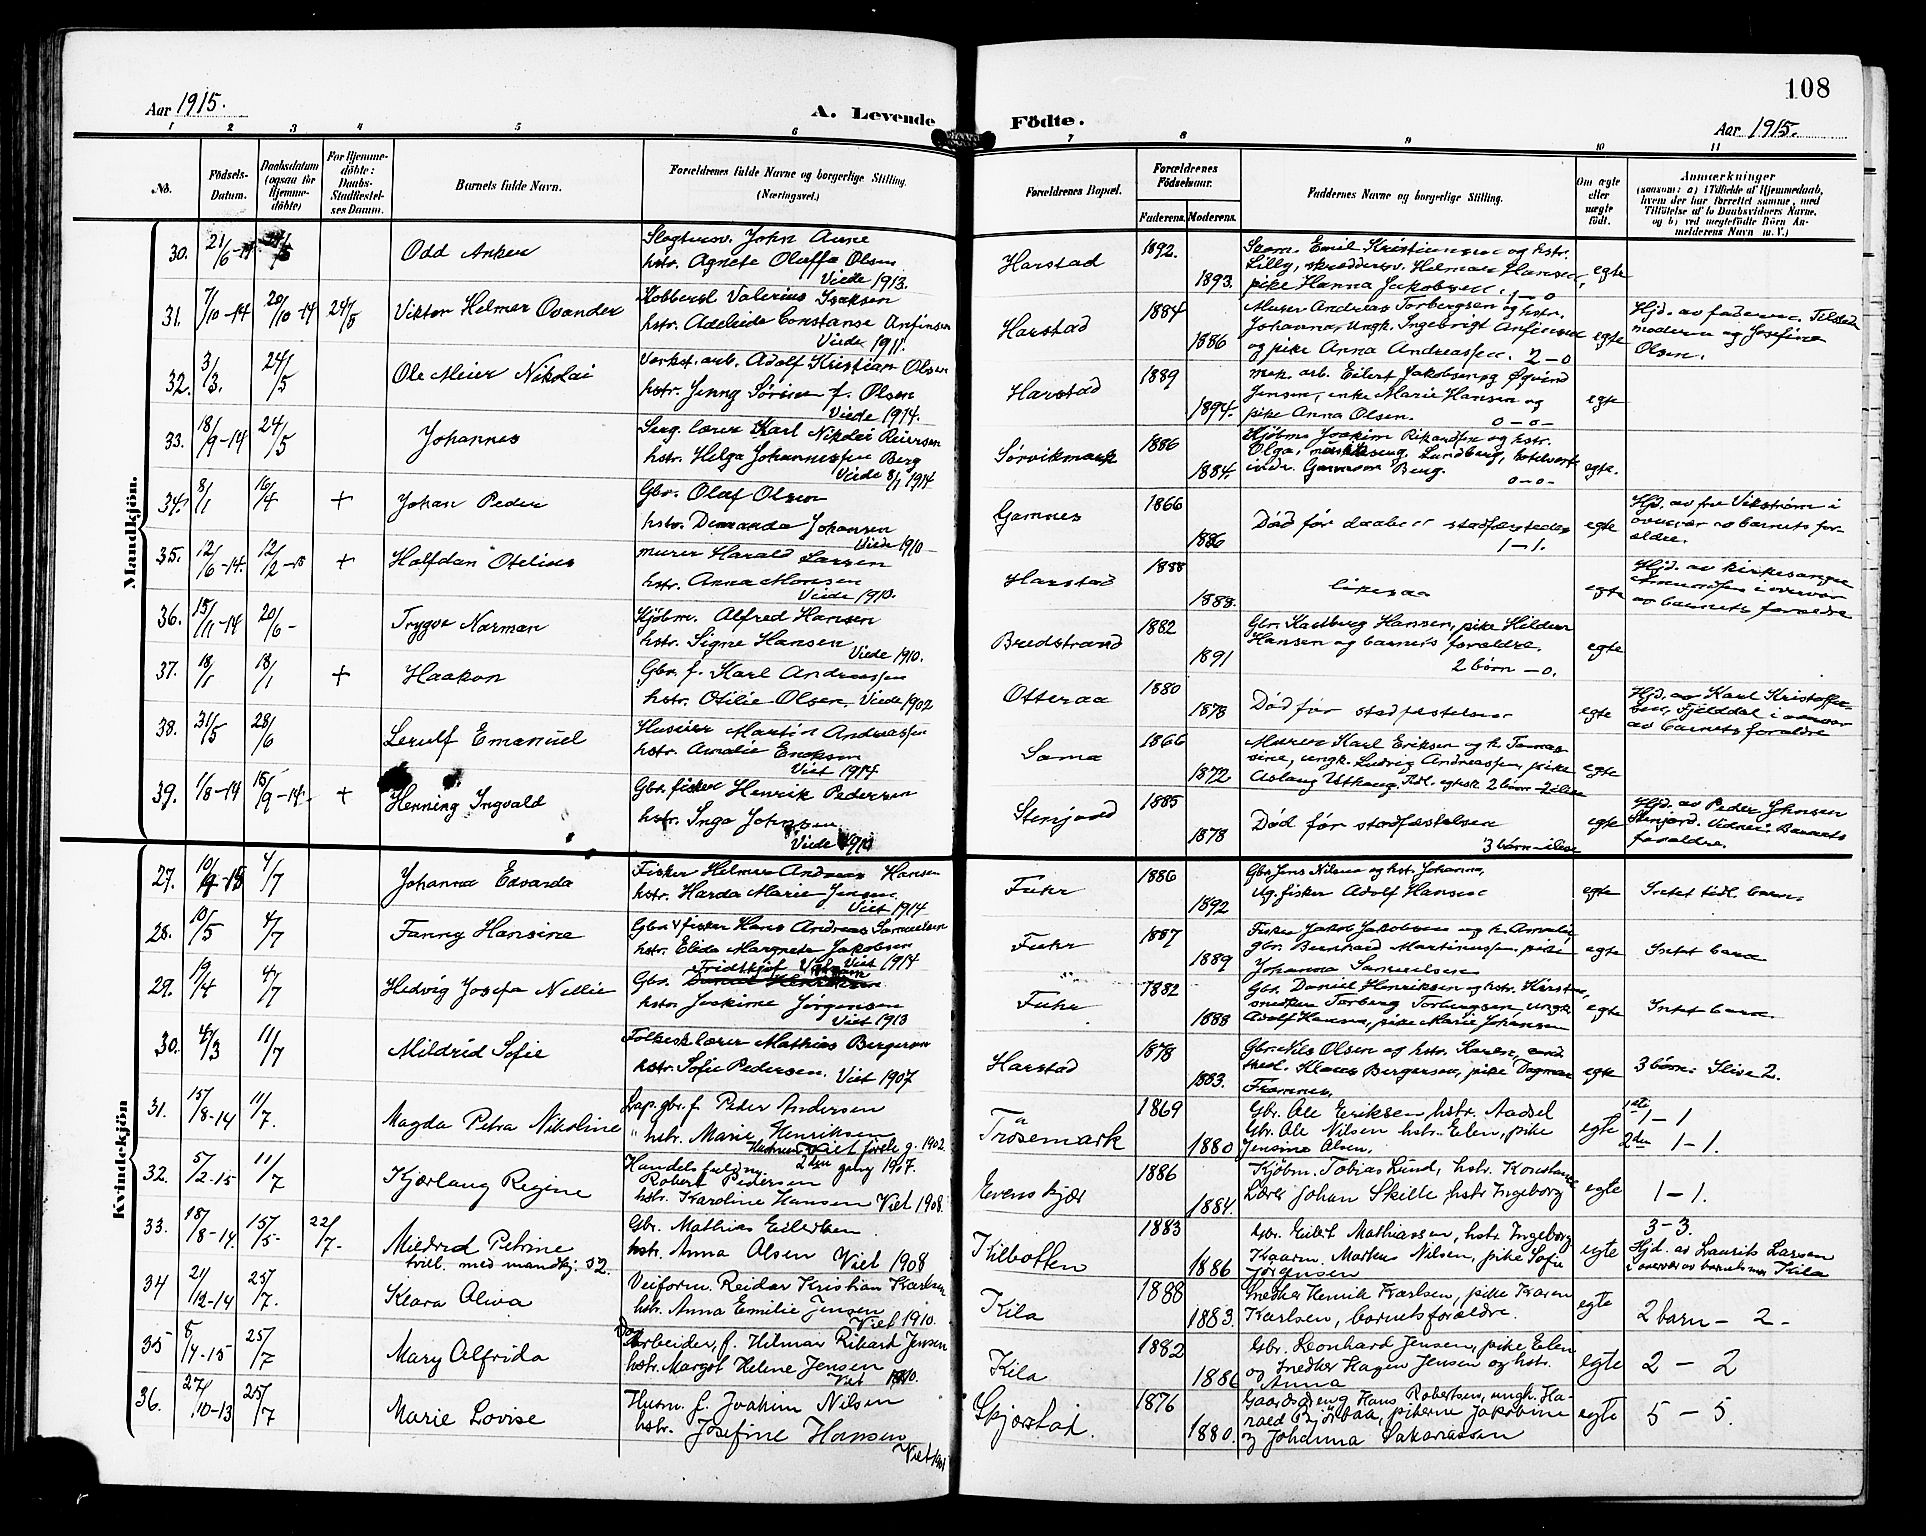 108
Aar 1915.
A. Levende Fødte.
Aar 1915.
1 2 3 4 5 6 7 8 9 10 11
No.
Fødsels-Datum.
Daabsdatum (ogsaa for Hjemme-døbte)
For Hjemme-døbte: Daabs-Stadfæstel-ses Datum.
Barnets fulde Navn.
Forældrenes fulde Navne og borgerlige Stilling. (Næringsvei.)
Forældrenes Bopæl.
Forældrenes Fødselsaar.
Faderens. Moderens.
Faddernes Navne og borgerlige Stilling.
Om ægte eller uægte født.
Anmærkninger
(saasom: a) i Tilfælde af Hjemmedaab, hvem der har forrettet samme, med Tilføielse af to Daabsvidners Navne, og b) ved uegtefødte Børn Anmelderens Navn m. V.)
Mandkjön.
30. 21/6-14. Odd Anker
John Aune
hstr. Agnete Oluffa Olsen
Viede 1913.
Harstad 1892. 1893.
Emil Kristiansen og hstr.
Lilly, Helmar Hansen,
pike Hanna Jakobsen. 1-0
egte
31. 7/10-14 20/10-14 24/5 Viktor Helmer Ovander
Valerius Isaksen
hstr. Adeleide Constanse Anfinsen
Viede 1911.
Harstad 1884 1886
Murer Andreas Torbergsen og hstr.
Johanna, ungk. Ingebrigt Anfinsen
og pike Anna Andreassen. 2-0
egte
Hjd. av faderen.
moderen og Josefine
Olsen.
32. 31/3. 24/5 Ole Meier Nikolai
Verkst. arb. Adolf Kristian Olsen
hstr. Jenny Sørine f. Olsen
Viede 1914.
Harstad 1889 1894.
mek. arb. Eilert Jakobsen og Øivind
Jensen, enke Marie Hansen og
pike Anna Olsen. 0-0-
egte
33. 18/9-14 24/5 Johannes
Serg. lærer Karl Nikolai Reiersen
hstr. Helga Johannessen Berg
Viede 8/1 1914
Sørvikmark 1886 1884.
Kjøbm. Joakim Rikardsen og hstr.
Olga, Lundberg,
Berg. 0-0-
egte.
34. 8/1 16/4 + Johan Peder
Gbr. Olaf Olsen
hstr. Demanda Johansen
Viede 1910-
Gamnes 1866 1886
Død før daaben stadfæstedes
1-1.
egte
Hjd. av fru Vikstrøm i
overvær av barnets for-
ældre.
35. 12/6-14. 12/2-15 + Halfdan Otelius
murer Harald Larsen
hstr. Anna Monsen
Viede 1910.
Harstad 1888 1888.
likesaa
egte
Hjd. av kirkesanger
i overvær
av barnets forældre
36. 15/11-14 20/6- Trygve Norman
Kjøbm. Alfred Hansen
hstr. Signe Hansen
Viede 1910.
Bredstrand 1882 1891
Gbr. Hansen, pike Hildur
Hansen og barnets forældre.
2 børn -0.
egte
37. 18/1 18/1 + Haakon
Gbr. f. Karl Andreassen
hstr. Otilie Olsen. Viede 1902
Otteraa 1880 1878
Død før stadfæstelsen
egte
Hjd. av Karl Kristoffer-
sen, Fjelddal i overvær
av barnets forældre
38. 31/5 28/6 Lerulf Emanuel
Huseier Martin Andreassen
hstr. Amalie Eriksen
Viet 1914
Sama 1866 1872
Murer Karl Eriksen og h. Tomas-
sine, ungk. Ludvig Andreassen, pike
Aslaug Uthaug. Tidl. egtesk. 2 børn
egte
39. 1/8-14 15/9-14- + Henning Ingvald
Gbr. fisker Henrik Pedersen
hstr. Inga Johnsen
Viede 1910
Stenjord 1885 1878
Død før stadfæstelsen
3 børn - ilive
egte
Hjd. av Peder Johnsen
Stenjord. Vidner: Barnets
forældre.
Kvindekjön
27. 4/7 Johanna Edvarda
Fisker Helmer Andreas Hansen
hstr. Harda Marie Jensen
Viet 1914
Fuhr 1886 1892
Gbr. Jens Nilsen og hst. Johanna,
Ug. fisker Adolf Hansen
egte
Intet tidl. barn.
28. 10/5 4/7 Fanny Hansine
Gbr. & fisker Hans Andreas Samuelsen
hstr. Elida Margrete Jakobsen
Viet 1914
Fuhr 1887 1889
Fisker Jakob Jakobsen og h. Amalie,
gbr. Bernhard Martinussen, pike
Johanna Samuelsen
egte
Intet barn
29. 19/4 4/7 Hedvig Josefa Nellie
Gbr. Fridtkjof
hstr. Joakime Jørgensen
Viet 1913
Fuhr 1882 1888
Gbr. Daniel Henriksen og hstr. Kirstine,
snedker Torberg Torbergsen, ungk.
Adolf Hansen, pike Marie Johansen
egte
Intet barn.
30. 4/3 11/7 Mildrid Sofie
Folkesk.lærer Mathias Bergersen
hstr. Sofie Pedersen. Viet 1907
Harstad 1878 1883.
Gbr. Nils Olsen og hstr. Karen,
Klaus Bergersen, pike Dagmar
Framnes.
egte
3 børn. Ilive 2.
31. 15/8-14 11/7. Magda Petra Nikoline
Lap. gbr. f. Peder Andersen
" hstr. Marie Henriksen
Viet første g. 1902.
2den gang 1907.
Trøsemark 1869 1880
Gbr. Ole Eriksen hstr. Aadsel
Gbr. Ole Nilsen hstr. Elen, pike
Jensine Olsen.
egte
1ste 1-1
2den 1-1.
32. 5/2-15 11/7 Kjærlaug Regine
Handelsfuldm. Robert Pedersen
hstr. Karoline Hansen Viet 1908.
Evenskjær 1886 1884.
Kjøbm. Tobias Lund, hstr. Konstanse
Lærer Johan Skille hstr Ingeborg
egte
1-1.
33. 18/8-14. 15/5- 22/7- Mildred Petrine
tvill. med mandkj. 52.
Gbr. Mathias Eilertsen
hstr. Anna Olsen Viet 1908
Kilbotten 1883 1886
Gbr. Eilert Mathiassen, hstr. Ingeborg
Kaarm. Morten Nilsen, pike Sofie
Jørgensen
egte
3-3.
Hjd. av Laurits Larsen
i overvær av barnets mor Kila
34 21/12-14 25/7. Klara Oliva
Veiform. Reidar Kristian Karlsen
hstr. Anna Emilie Jensen
Viet 1910.
Kila 1888 1883.
Snedker Henrik Karlsen, pike Karen
Karlsen, barnets forældre.
egte
2 barn - 2-
35 8/4-15 25/7 Mary Alfrida
Arbeider, f. Hilmar Rikard Jensen
hstr. Margot Helene Jensen
Viet 1910.
Kila 1882 1886
Gbr. Leonhard Jensen, pike Elen
og Snedker Hagen Jensen og hstr.
Anna
egte
2 - 2
36. 27/10-13 25/7 Marie Lovise
Husm. f. Joakim Nilsen
hstr. Josefine Hansen
Viet 1901
Skjærstad. 1876 1880.
Gaardsdreng Hans Robertsen, ungk. Ha-
rald pikerne Jakobine
og Johanna Sakariassen
egte
5 - 5.